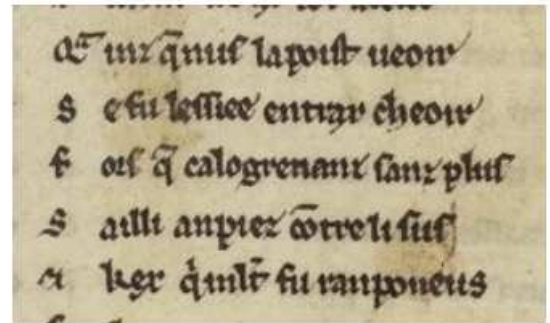 A inz q̄ nus la poist ueoir
S e fu lessiee entrax cheoir
F ors q̄ calogrenanz sanz plus
S ailli anpiez cōtre li sus
& kex q̇ mlt̄ fu ranponeus